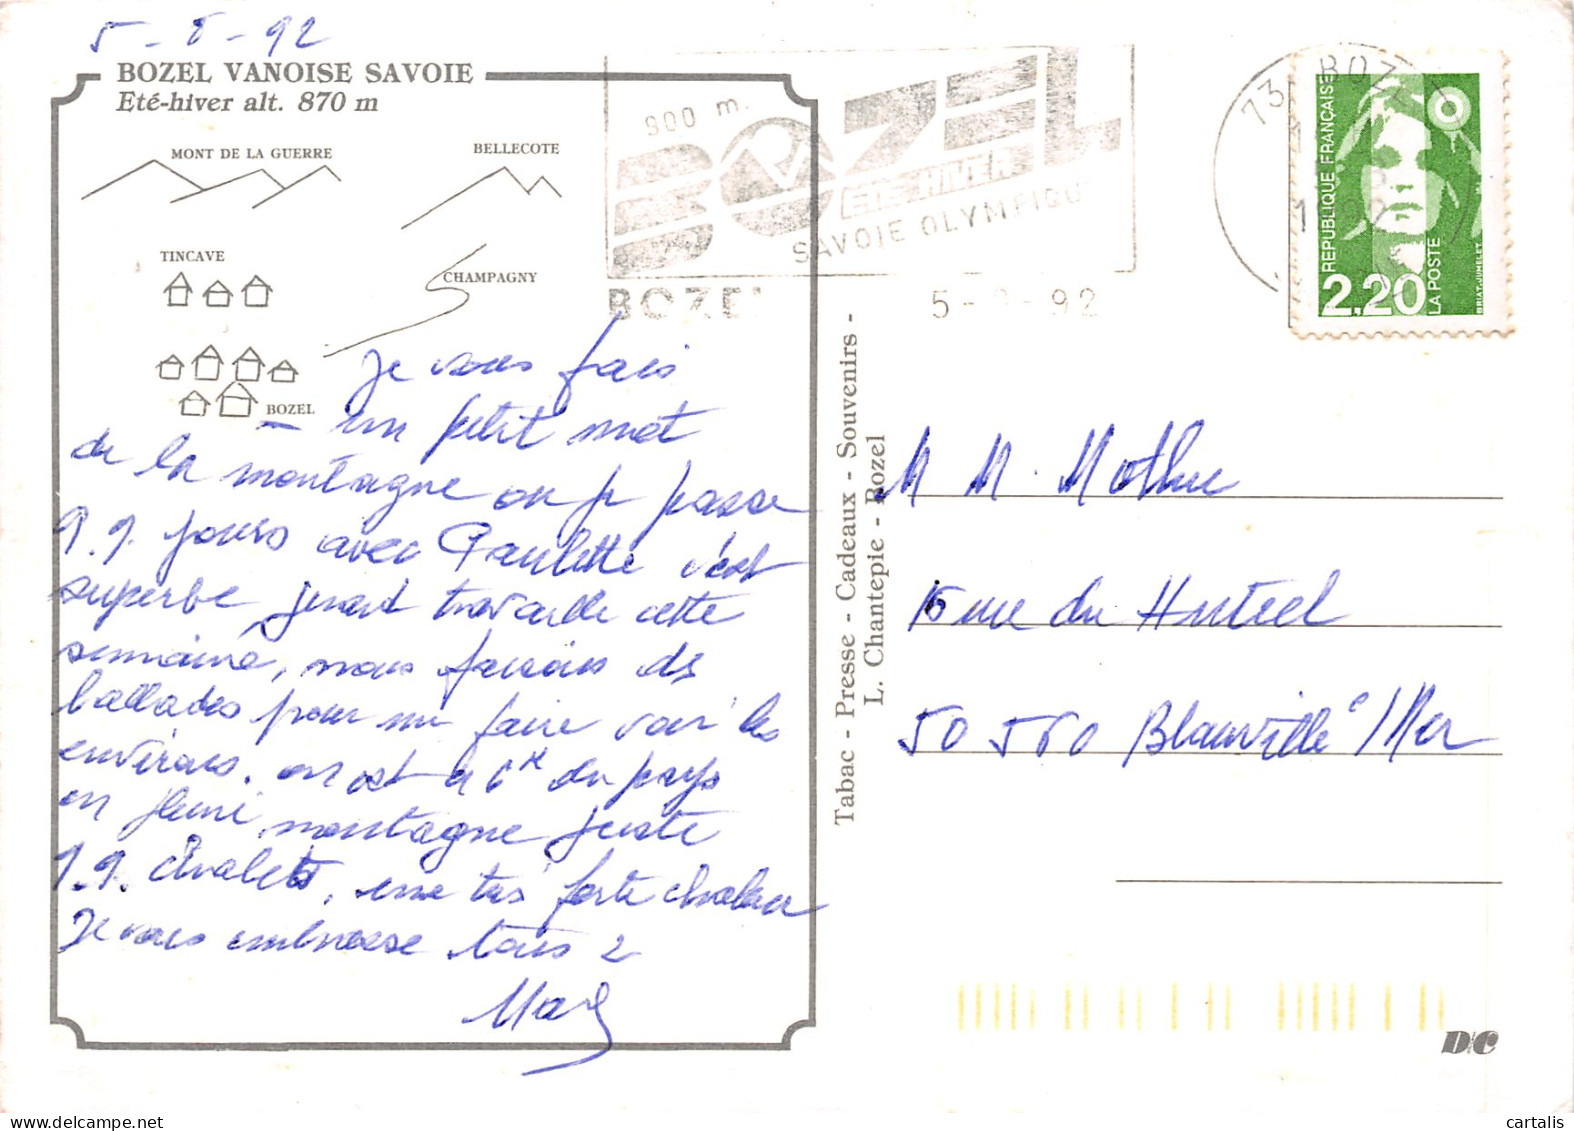 5-8-92
BOZEL VANOISE SAVOIE
Eté-hiver alt. 870 m
MONT DE LA GUERRE
BELLECOTE
TINCAVE
CHAMPAGNY
BOZEL
Je vous fais
un petit mot
de la montagne ou je passe
q.q. jours avec Paulette c'est
superbe travaille cette
semaine, nous faisons des
ballades pour me faire voir les
environs. on est a du pays
en fleuri montagne juste
q.q. chalets, une très forte chaleur
Je vous embrasse tous 2
900 m.
BOZEL
ETE HIVER
SAVOIE OLYMPIQUE
BOZEL
5-8-92
73 BOZEL
REPUBLIQUE FRANÇAISE
2,20
LA POSTE
BRIAT.JUMELET
Tabac - Presse - Cadeaux - Souvenirs -
L. Chantepie - Bozel
M M. Mothue
15 rue du
50 560 Blainville s/Mer
D/C
cartalis